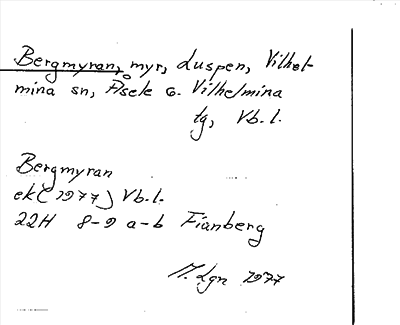 Bergmyran, myr, Luspen, Vilhel-
mina sn, Åsele o. Vilhelmina
tg, Vb. l.
Bergmyran
ek (1977) Vb. l.
22H 8-9 a-b Fianberg
M. Lgn 1977